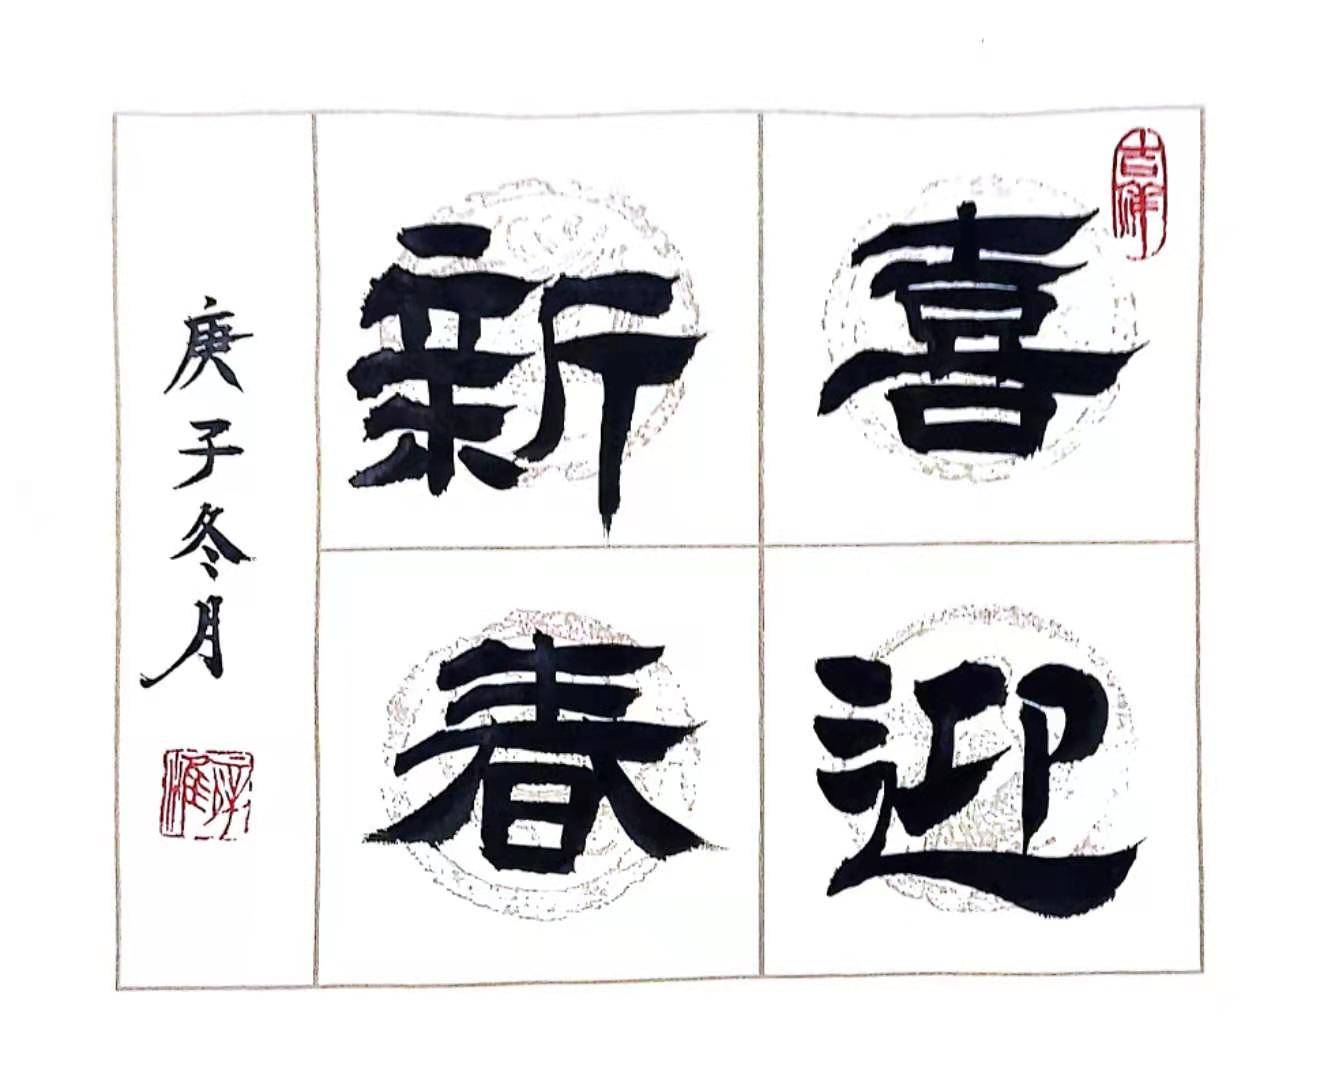 吉祥
喜迎
新春
庚子冬月